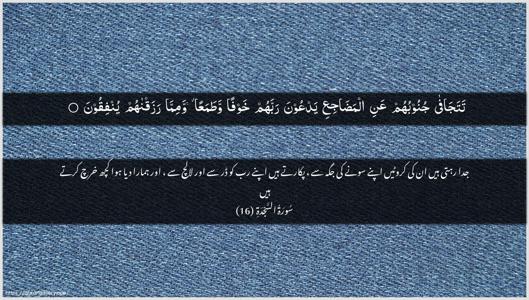 تَتَجَافٰى جُنُوْبُهُمْ عَنِ الْمَضَاجِعِ يَدْعُوْنَ رَبَّهُمْ خَوْفًا وَّطَمَعًا ۡ وَّمِمَّا رَزَقْنٰهُمْ يُنْفِقُوْنَ ○
جدا رہتی ہیں ان کی کروٹیں اپنے سونے کی جگہ سے، پکارتے ہیں اپنے رب کو ڈر سے اور لالچ سے، اور ہمارا دیا ہوا کچھ خرچ کرتے
ہیں
سُورَةُ السَّجْدَةِ (16)